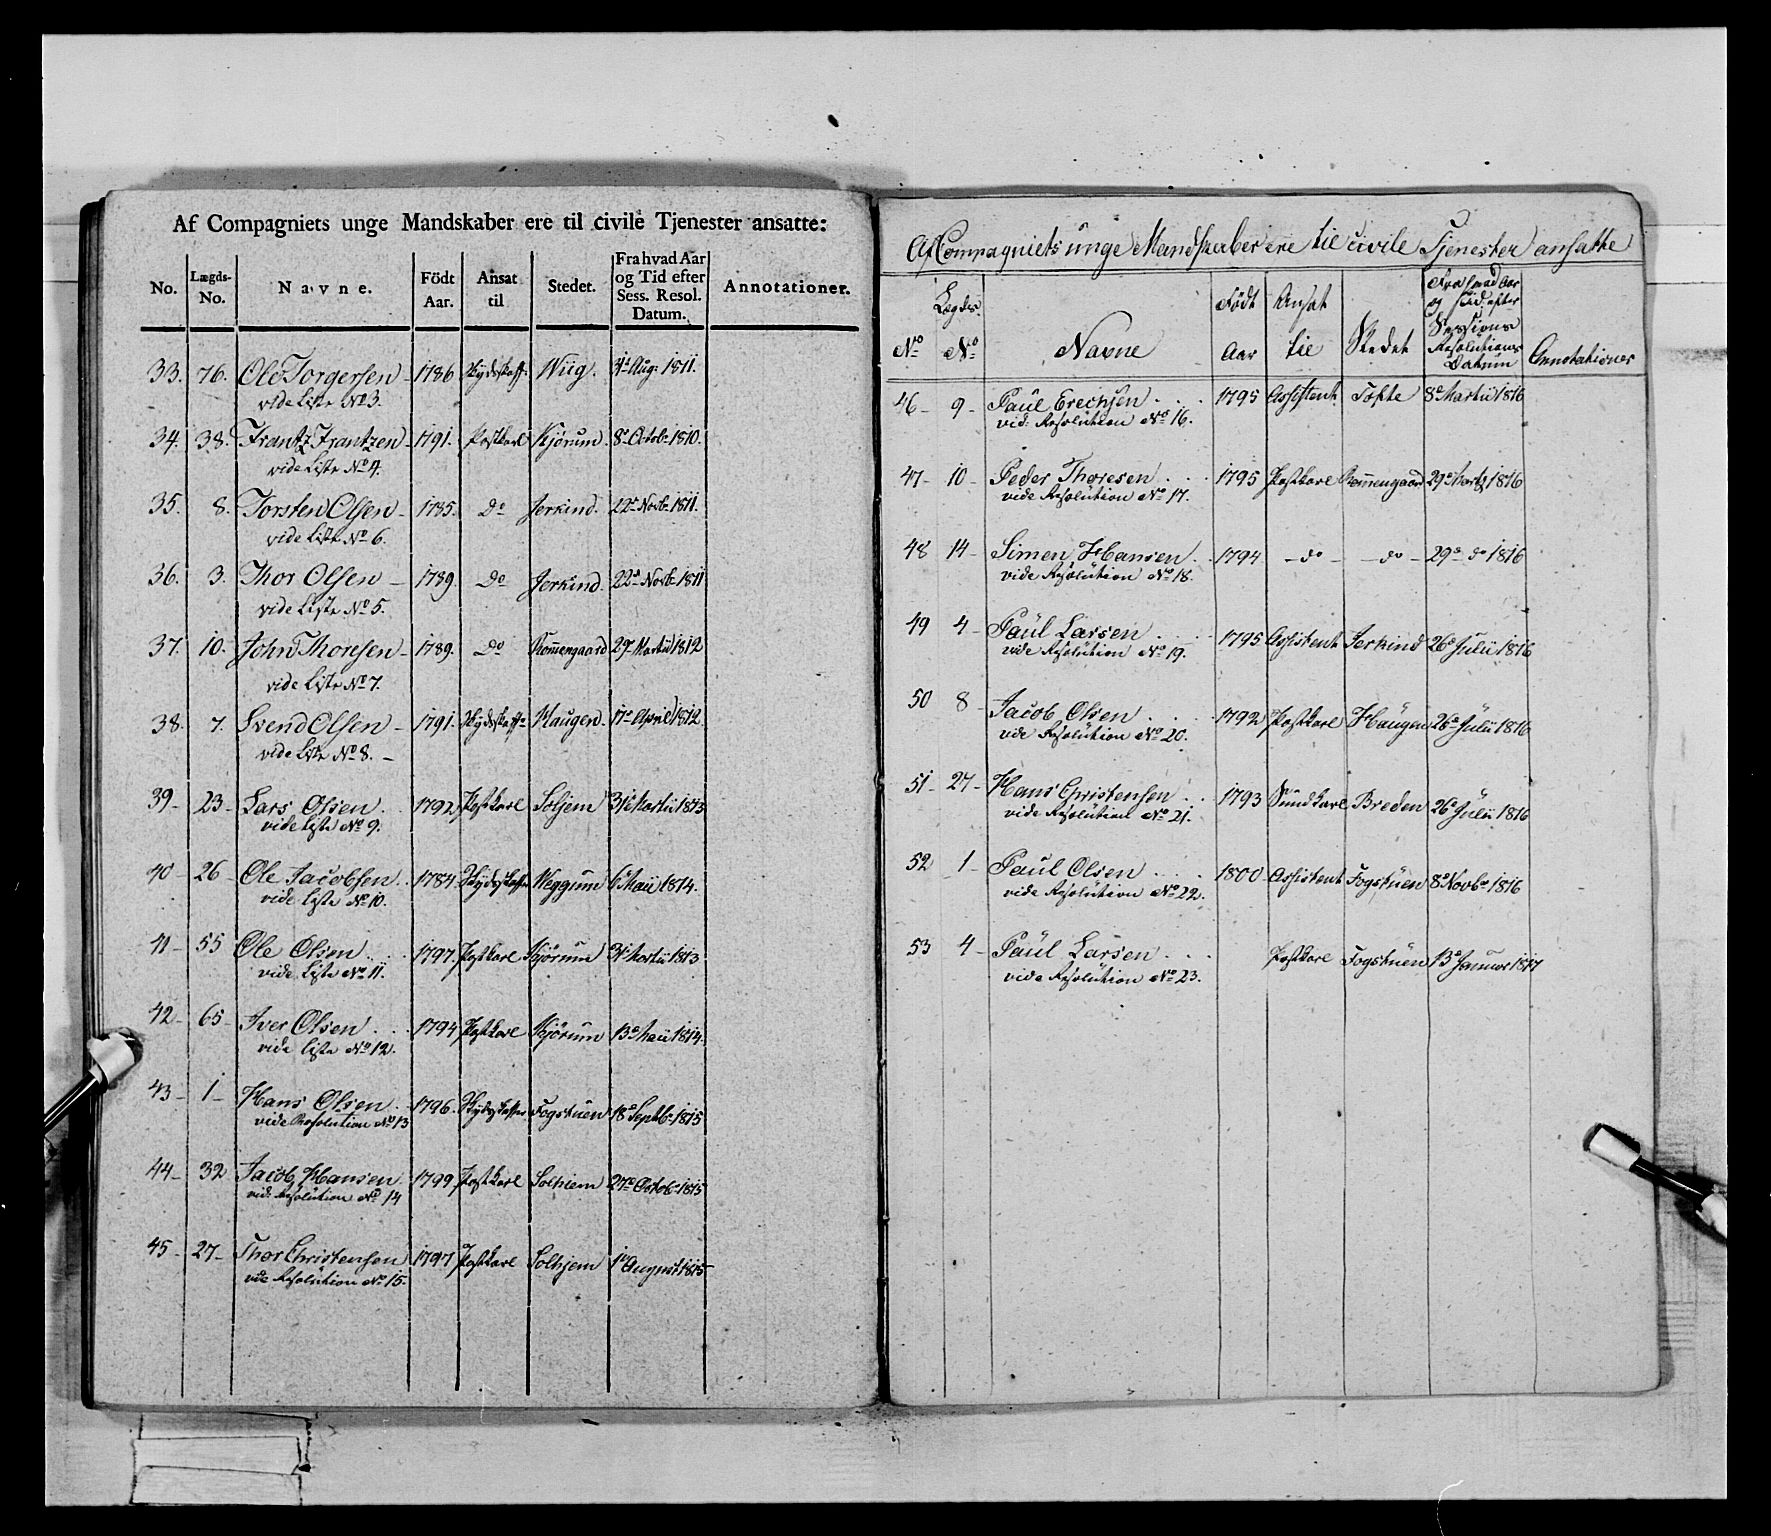 Af Compagniets unge Mandskaber ere til civile Tjenester ansatte:
No. Lægds-No. Navne. Födt Aar. Ansat til Stedet. Fra hvad Aar og Tid efter Sess. Resol. Datum. Annotationer.
33. 76. Ole Torgersen 1786 Skydsskaff: Wiig. 31t Aug: 1811.
vide Liste No 3.
34. 38. Frantz Frantzen 1791. Postkarl Kjørum. 8de Octob: 1810.
vide Liste No 4.
35. 8. Torsten Olsen 1785. Do Jerkind. 22de Novb: 1811.
vide Liste No 6.
36. 3. Thor Olsen 1789. Do Jerkind. 22de Novb: 1811
vide Liste No 5.
37. 10. John Thoresen 1789. Do Rommengaard 29de Martii 1812
vide Liste No 7.
38. 7. Svend Olsen 1791. Skydsskaffer Haugen. 17de April 1812.
vide Liste No 8.
39 23 Lars Olsen 1792 Postkarl Soljem 31 Martii 1813
vide Liste No 9.
40 26 Ole Jacobsen 1784 Skydsskaffer Weggum 6 Maii 1814.
vide Liste No 10.
41 55 Ole Olsen 1797. Postkarl Kjörum 31 Martii 1813
vide Liste No 11.
42 65 Iver Olsen 1794 Postkarl Kjörum 13de Maii 1814.
vide Liste No 12.
43 1 Hans Olsen 1796. Skydsskaffer Fogstuen 18de Septb: 1815
vide Resolution No 13
44 32 Jacob Hansen 1799 Postkarl Solhiem 27de Octob: 1815
vid: Resolution No 14
45 27 Thor Christensen 1797 Postkarl Solhjem 1te August 1815
vide Resolution No 15.
Af Compagniets unge Mandskaber ere til civile Tjenester ansatte
No Lægds No Navne Födt Aar Ansat til Stedet Fra hvad Aar og Tid efter Sessions Resolutions Datum Annotationer
46 9 Paul Erechsen 1795 Assistent Tofte 8de Martii 1816
vid: Resolution No 16.
47 10 Peder Thoresen 1795 Postkarl Rommengaard 29de Marty 1816
vide Resolution No 17.
48 14 Simen Hansen 1794 do do 29de do 1816
vide Resolution No 18.
49 4 Paul Larsen 1795 Assistent Jerkind 26de Julii 1816
vide Resolution No 19.
50 8 Jacob Olsen 1792 Postkarl Haugen 26de Julii 1816
vide Resolution No 20.
51 27 Hans Christensen 1793 Sundkarl Breden 26de Julii 1816
vide Resolution No 21.
52 1 Paul Olsen 1800 Assistent Fogstuen 8de Novb: 1816
vide Resolution No 22.
53 4 Paul Larsen Postkarl Fogstuen 13de Januar 1817
vide Resolution No 23.